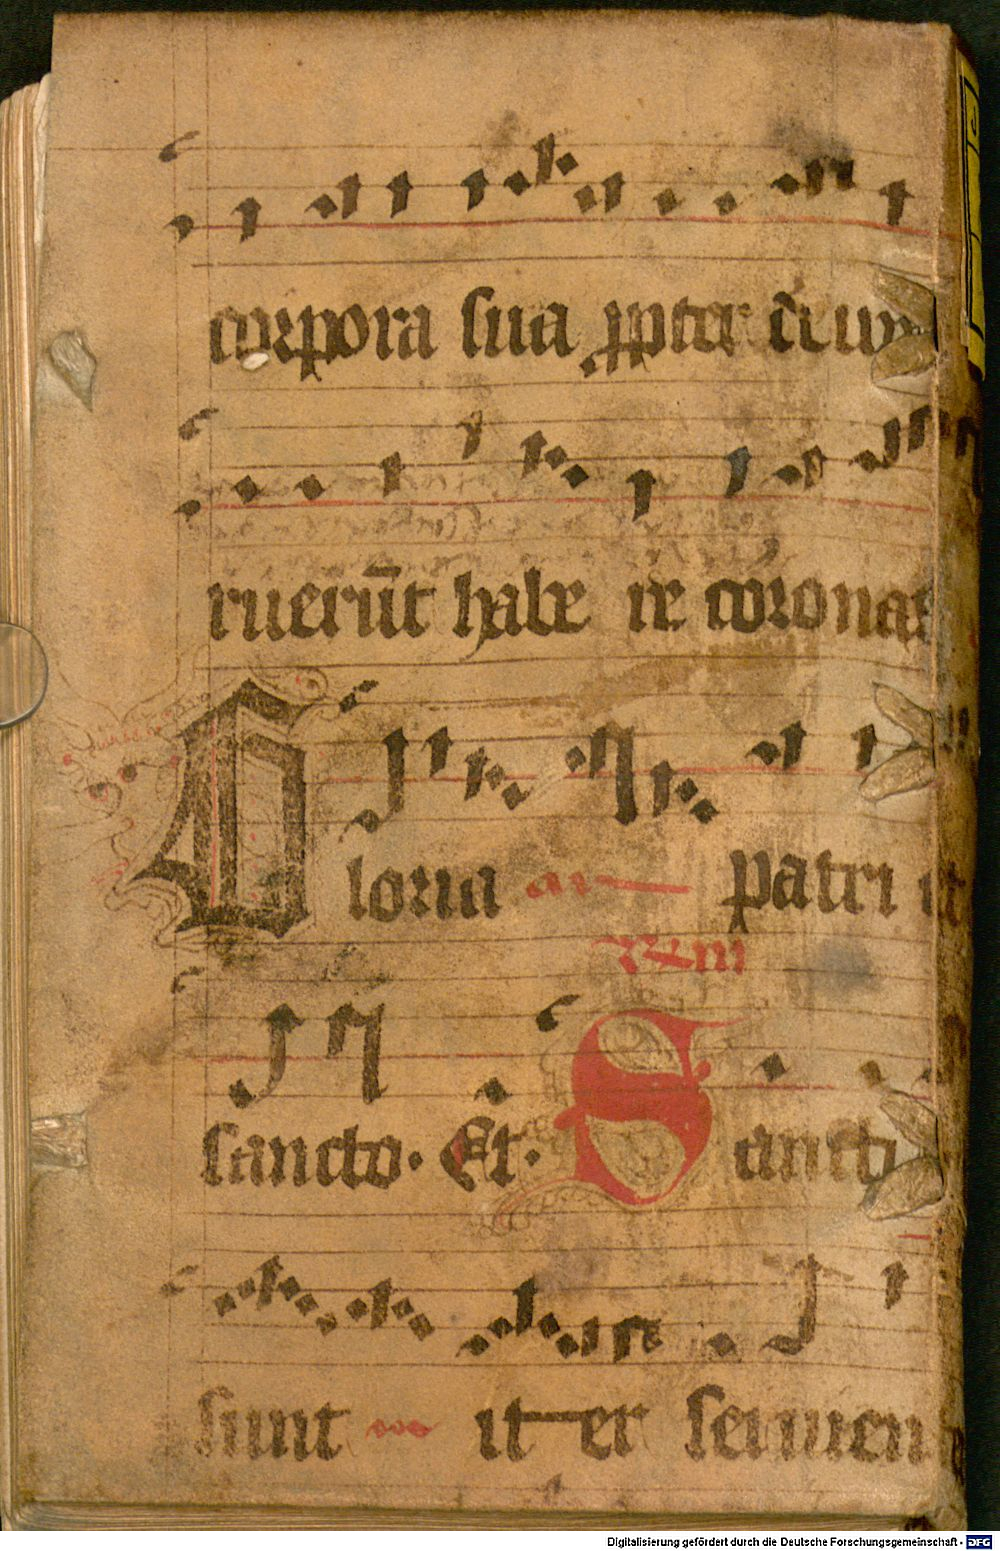 corpora sua ꝓpter
ruerūt habe re coronas
Gloria patri et
sancto. Et. Sancti
sunt it er seruien
Digitalisierung gefördert durch die Deutsche Forschungsgemeinschaft - DFG